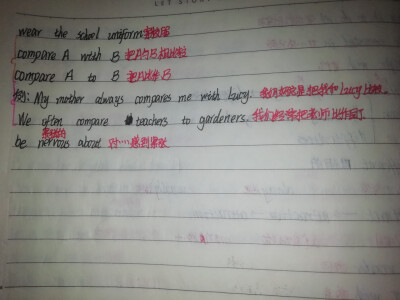 wear the school uniform 穿校服
compare A with B 把A与B相比较
compare A to B 把A比作B
例: My mother always compares me with Lucy. 我妈妈总是把我和Lucy比较.
We often compare teachers to gardeners. 我们经常把老师比作园丁
be nervous about 对…感到紧张